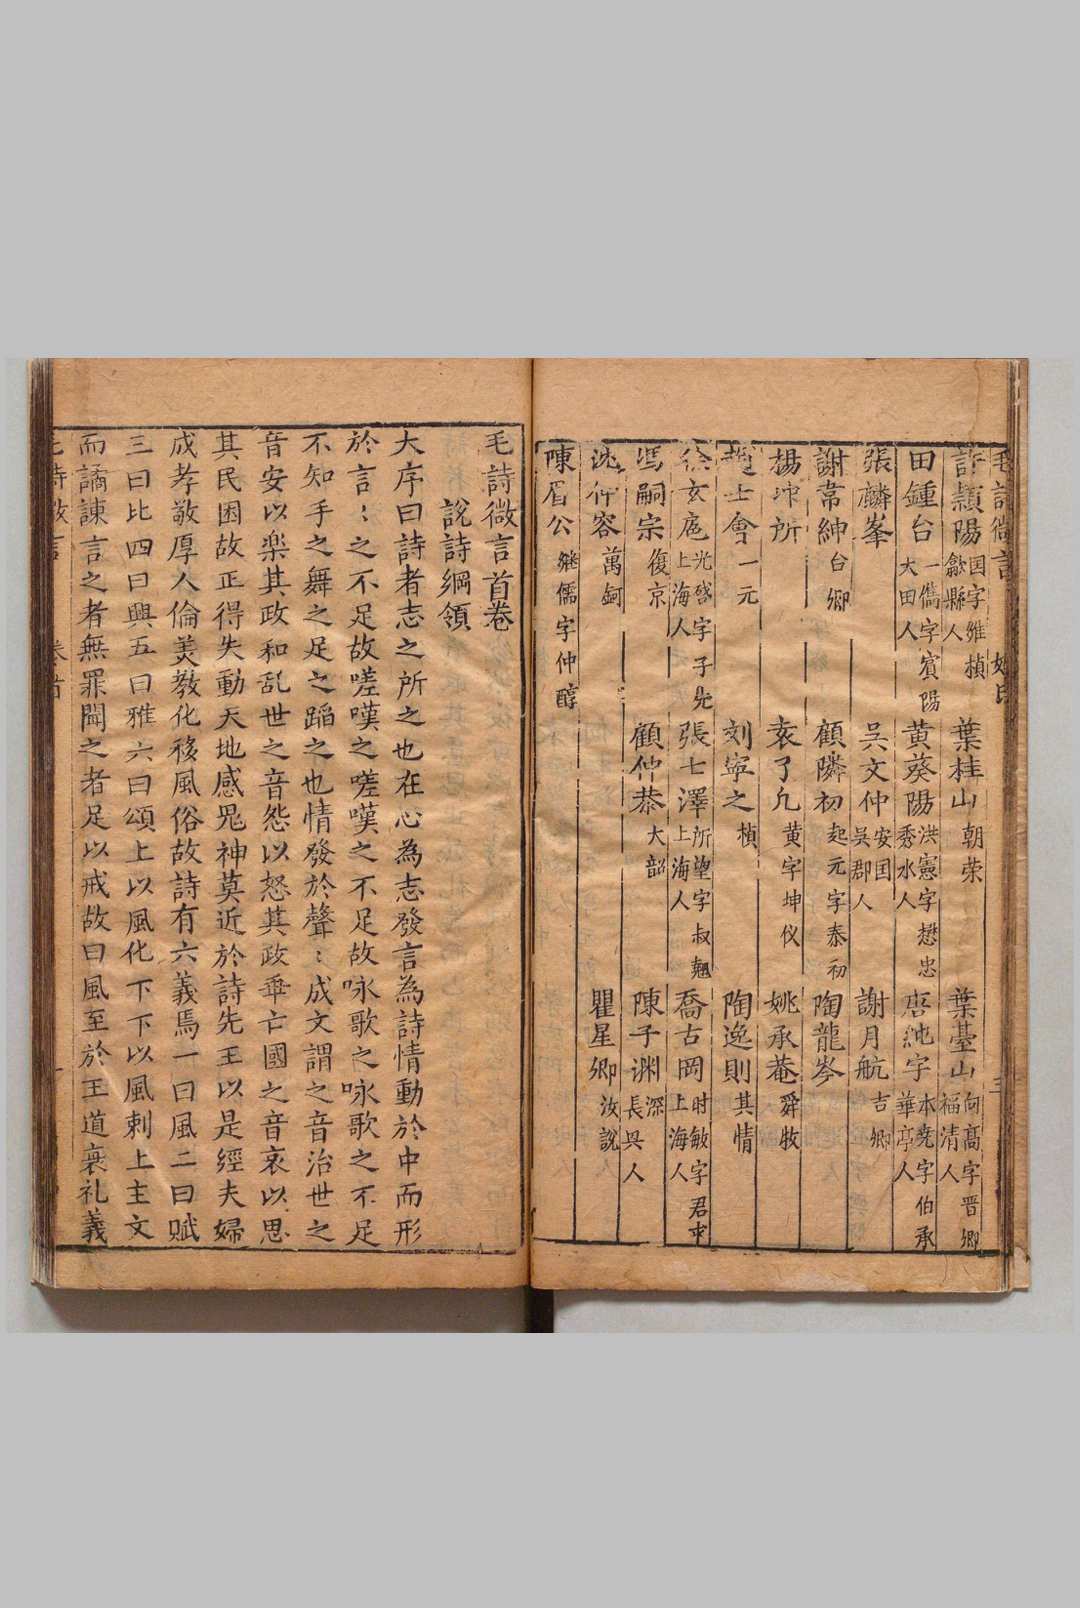 毛詩微言 姓氏 三
許頴陽 国字維楨歙縣人 葉桂山 朝荣 葉臺山 向高字晋卿福清人
田鍾台 一儁字賓陽大田人 黄葵陽 洪憲字懋忠秀水人 唐純宇 本堯字伯承華亭人
張麟峯 吴文仲 安国吳郡人 謝月航 吉卿
謝常紳 台卿 顧隣初 起元字泰初 陶龍岑
楊沛所 袁了凡 黄字坤仪 姚承菴 舜牧
趙士會 一元 刘寧之 楨 陶逸則 其情
徐玄扈 光啓字子先上海人 張七澤 所望字叔翹上海人 喬古岡 时敏字君屯上海人
馮嗣宗 復京 顧仲恭 大韶 陳子渊 深長兴人
沈仲容 萬鈳 瞿星卿 汝説
陳眉公 継儒字仲醇
毛詩微言首卷
說詩綱領
大序曰詩者志之所之也在心為志發言為詩情動於中而形
於言〻之不足故嗟嘆之嗟嘆之不足故咏歌之咏歌之不足
不知手之舞之足之蹈之也情發於聲〻成文謂之音治世之
音安以楽其政和乱世之音怨以怒其政乖亡國之音哀以思
其民困故正得失動天地感鬼神莫近於詩先王以是經夫婦
成孝敬厚人倫美教化移風俗故詩有六義焉一曰風二曰赋
三曰比四曰興五曰雅六曰頌上以風化下下以風刺上主文
而譎諫言之者無罪聞之者足以戒故曰風至於王道衰礼義
毛詩微言 卷首 一